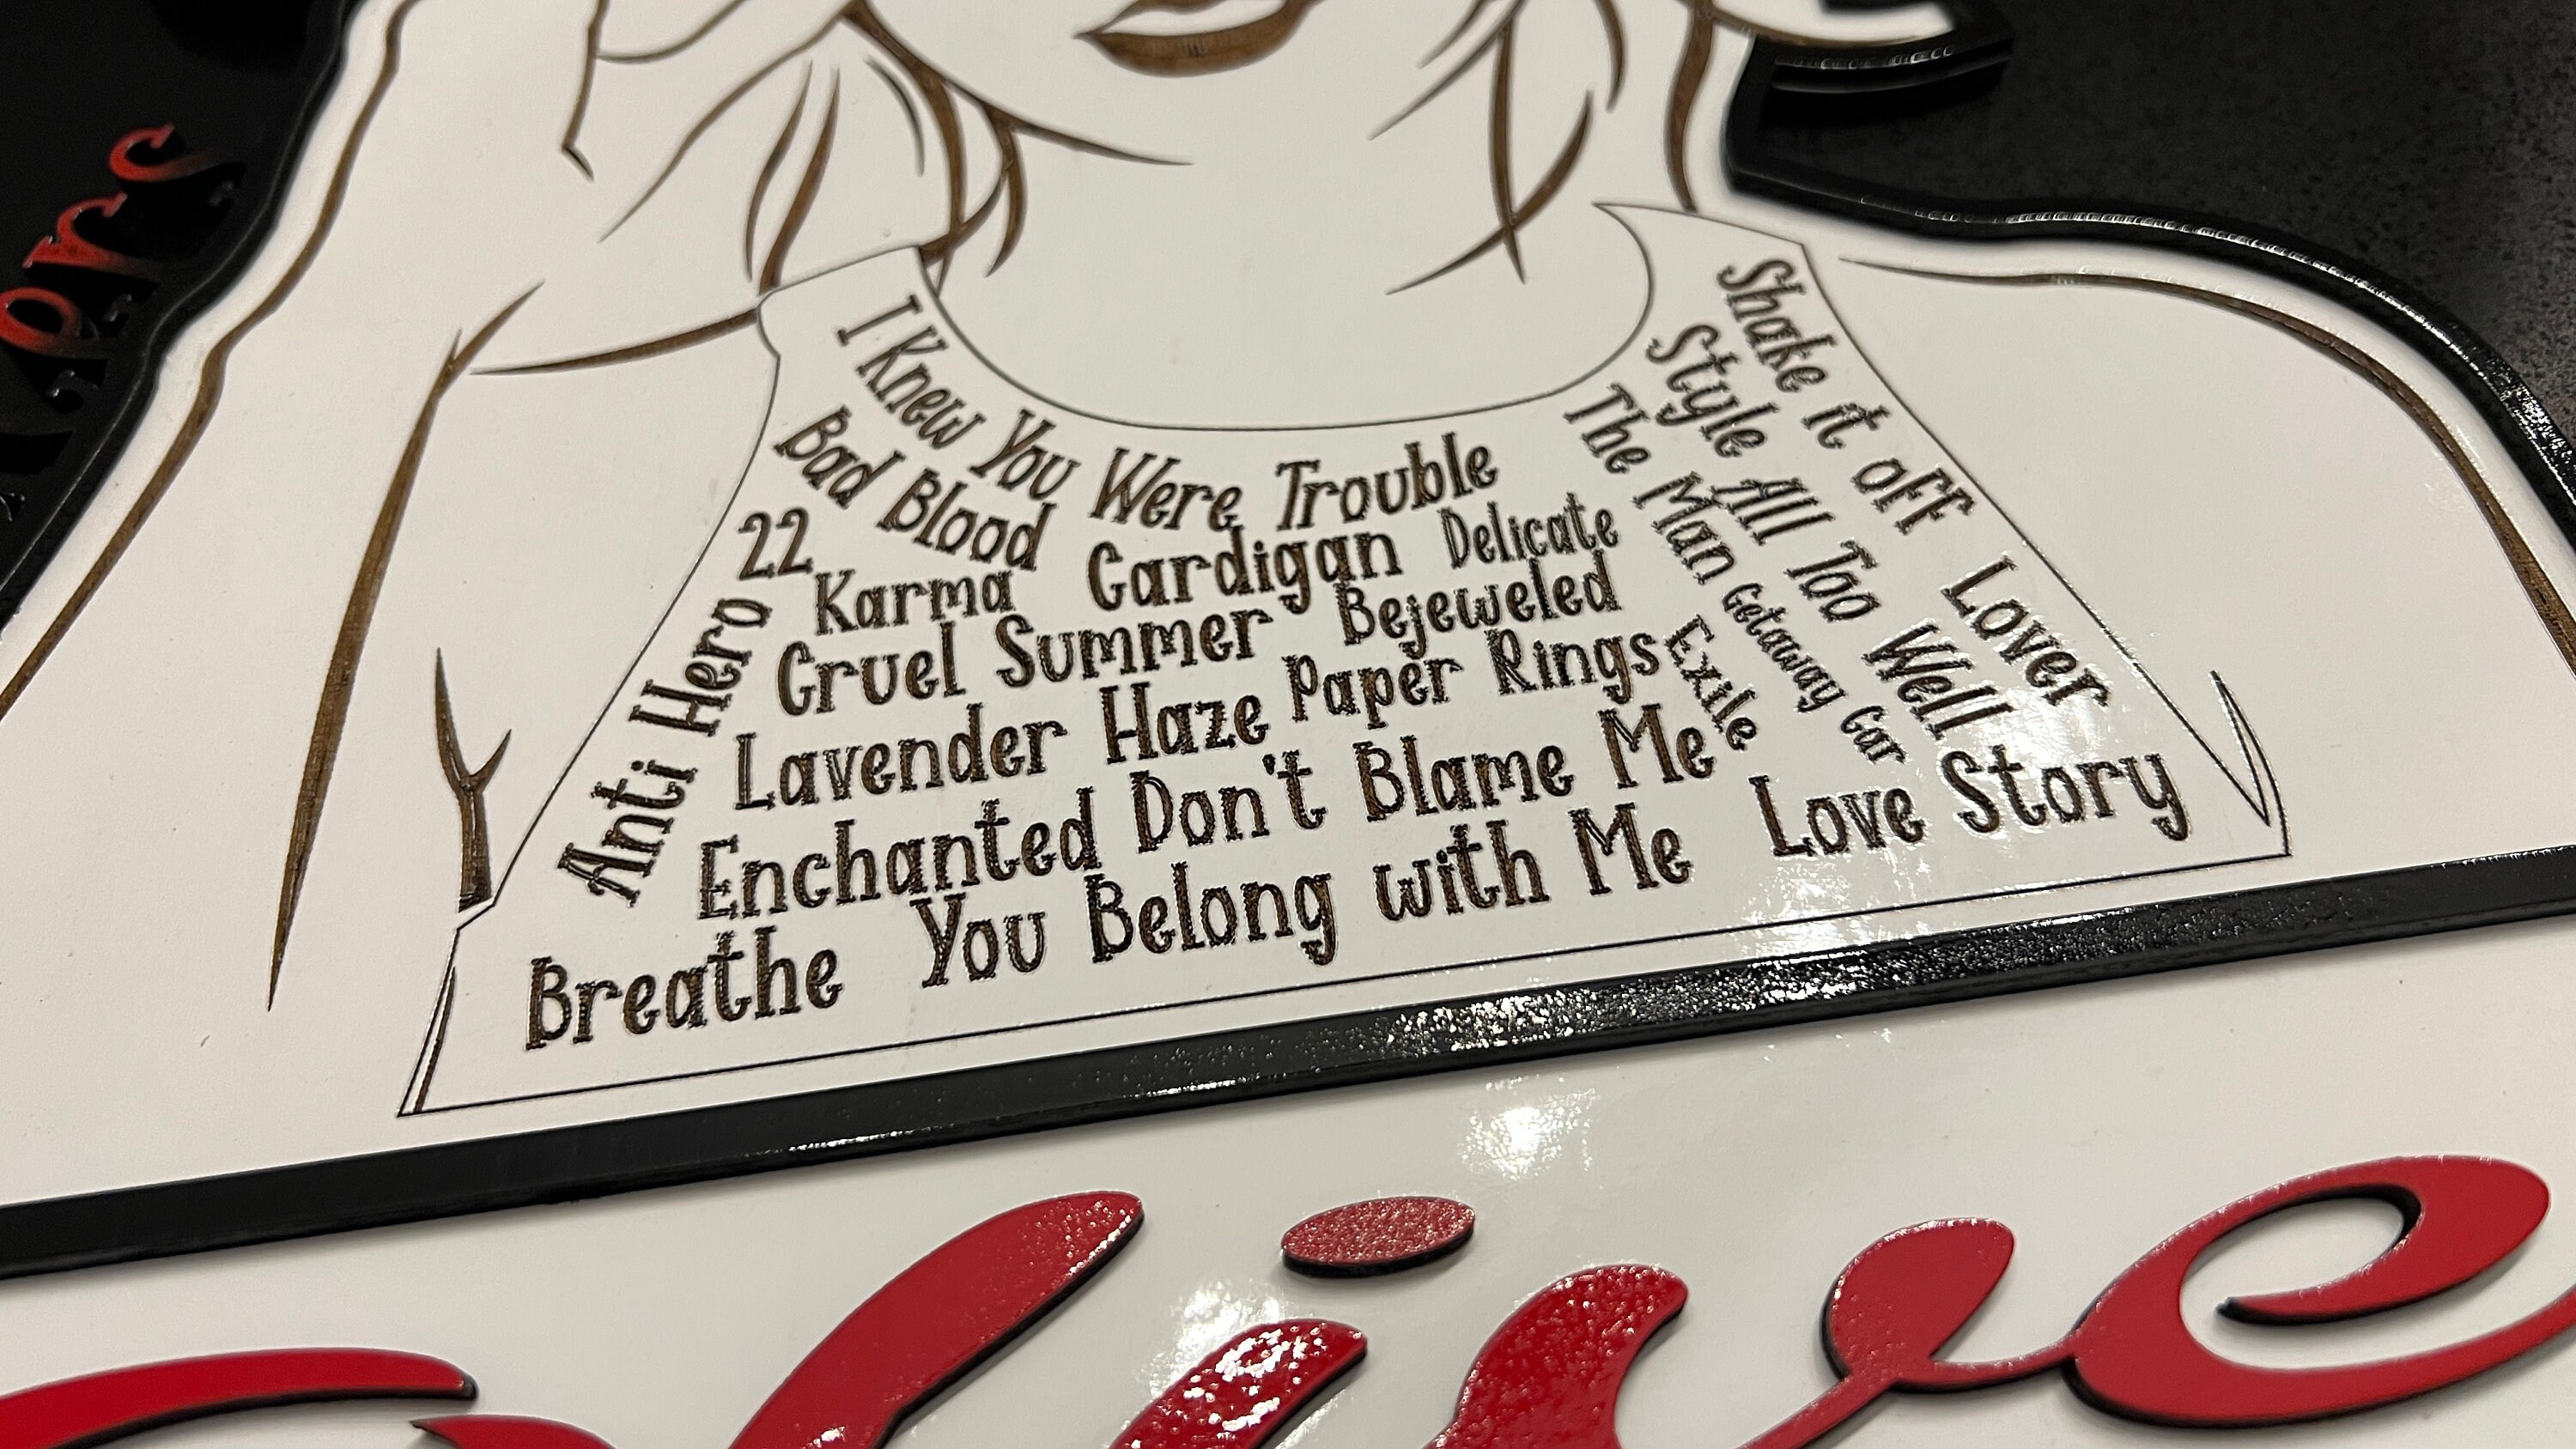 I Knew You Were Trouble
Bad Blood
22
Karma
Cardigan
Delicate
Anti Hero
Cruel Summer
Bejeweled
Lavender Haze
Paper Rings
Enchanted
Don't Blame Me
Breathe
You Belong with Me
Love Story
Shake it off
Lover
Style
All Too Well
The Man
Getaway Car
Exile